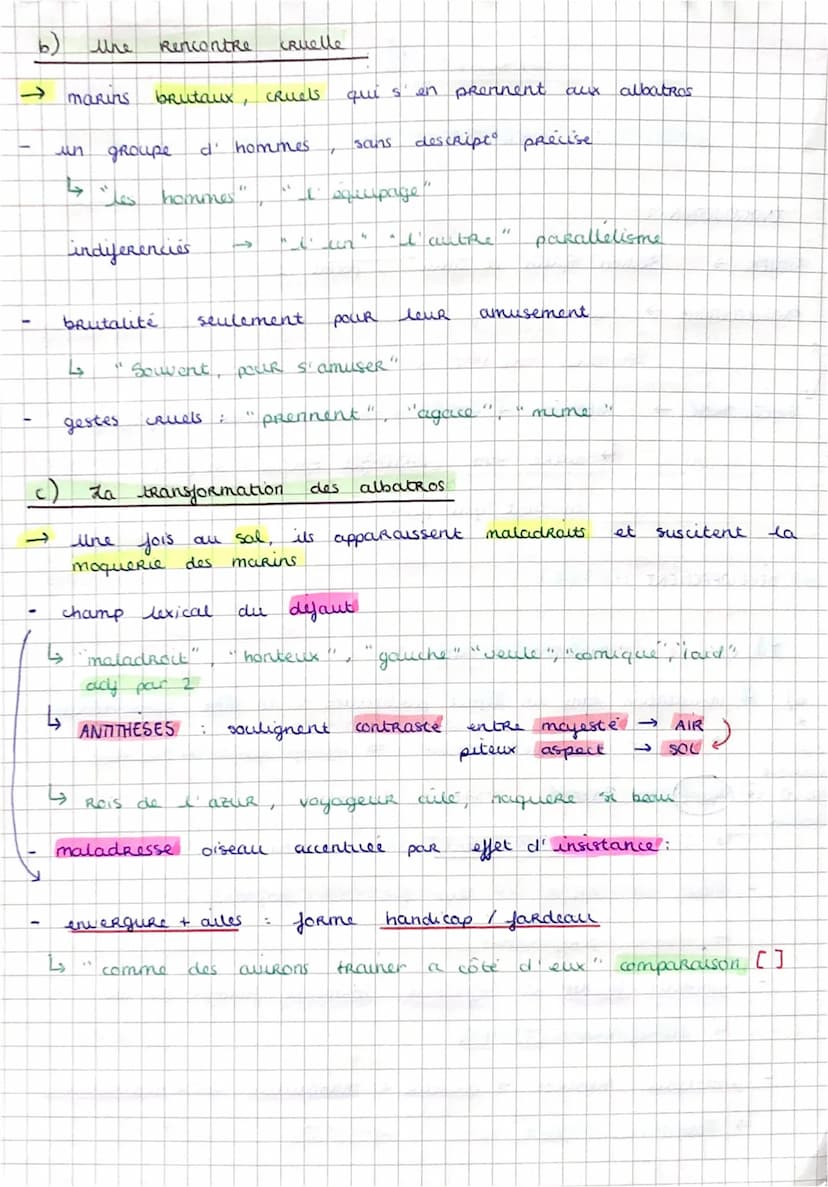 b) Une Rencontre cruelle
→ marins brutaux, cruels qui s'en prennent aux albatros
- un groupe d'hommes, sans descript° précise
↳ "les hommes", "l'équipage"
indiferenciés → "l'un" "l'autre" parallélisme
- brutalité seulement pour leur amusement
↳ "Souvent, pour s'amuser"
- gestes cruels : "prennent", "agace", "mime"
c) La transformation des albatros
→ Une fois au sol, ils apparaissent maladroits et suscitent la
moquerie des marins
- champ lexical du défaut
↳ "maladroit", "honteux", "gauche" "veule", "comique", "laid"
adj par 2
↳ ANTITHÈSES : soulignent contraste entre majesté → AIR
piteux aspect → SOL
↳ Rois de l'azur, voyageur ailé, naguere si beau
- maladresse oiseau accentuée par effet d'insistance :
- envergure + ailes : forme handicap / fardeau
↳ "comme des avirons trainer a côté d'eux" comparaison []